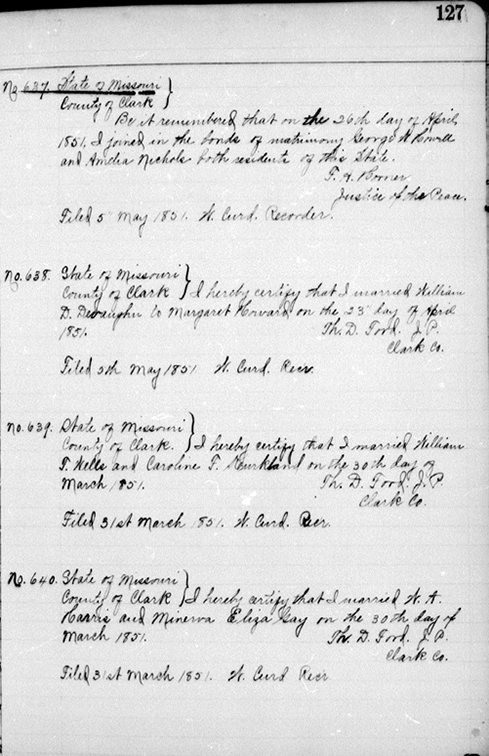 127
No 637. State of Missouri }
County of Clark }
Be it remembered that on the 26th day of April
1851, I joined in the bonds of matrimony George W
and Amelia Nichols both residents of this State.
Justice of the Peace.
Filed 5 May 1851. W. Curd. Recorder.
No. 638. State of Missouri }
County of Clark } I hereby certify that I married William
D. to Margaret Howard on the 23 day of April
1851. Th. D. Ford. J. P.
Clark Co.
Filed 5th May 1851 W. Curd. Recr.
No. 639. State of Missouri }
County of Clark. } I hereby certify that I married William
T. Wells and Caroline T. on the 30th day of
March 1851. Th. D. Ford. J. P.
Clark Co.
Filed 31st March 1851. W. Curd. Recr.
No. 640. State of Missouri }
County of Clark } I hereby certify that I married W. A.
Harris and Minerva Eliza Gay on the 30th day of
March 1851. Th. D. Ford. J. P.
Clark Co.
Filed 31st March 1851. W. Curd Recr